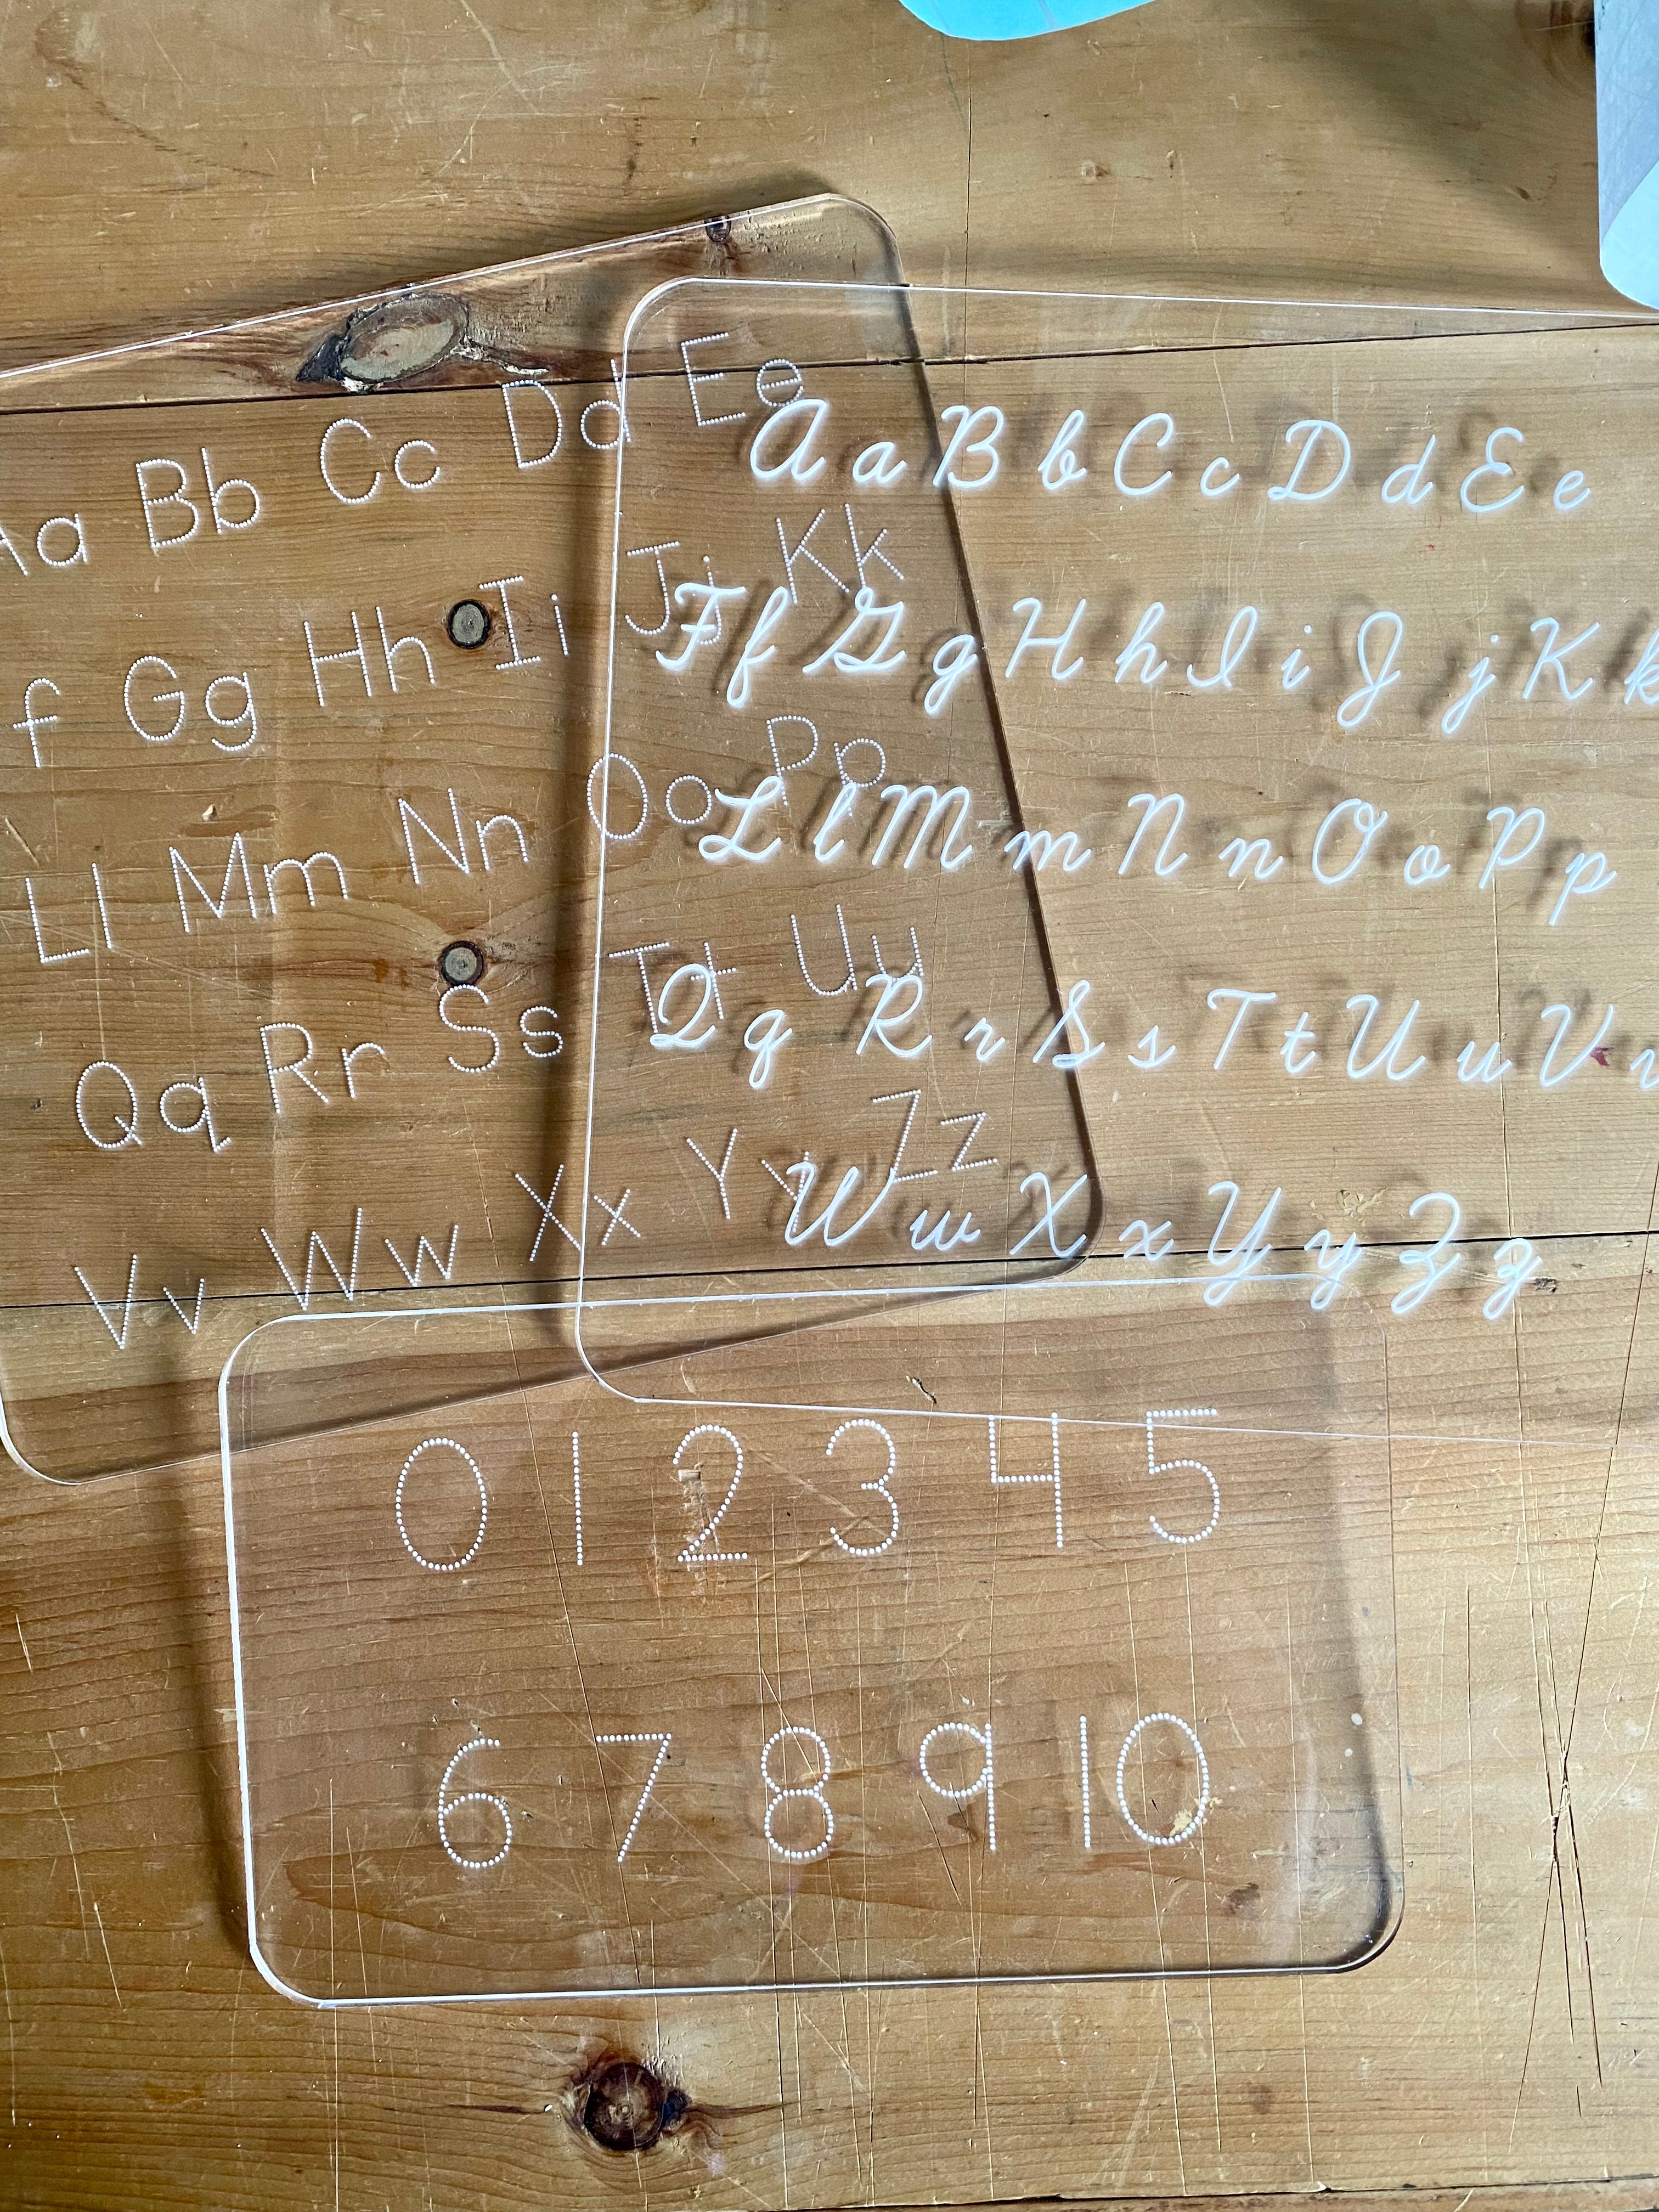 Aa Bb Cc Dd Ee
f Gg Hh Ii Jj Kk
Ll Mm Nn Oo Pp
Qq Rr Ss Tt Uu
Vv Ww Xx Yy Zz
A a B b C c D d E e
F f G g H h I i J j K k
L l M m N n O o P p
Q q R r S s T t U u V v
W w X x Y y Z z
0 1 2 3 4 5
6 7 8 9 10